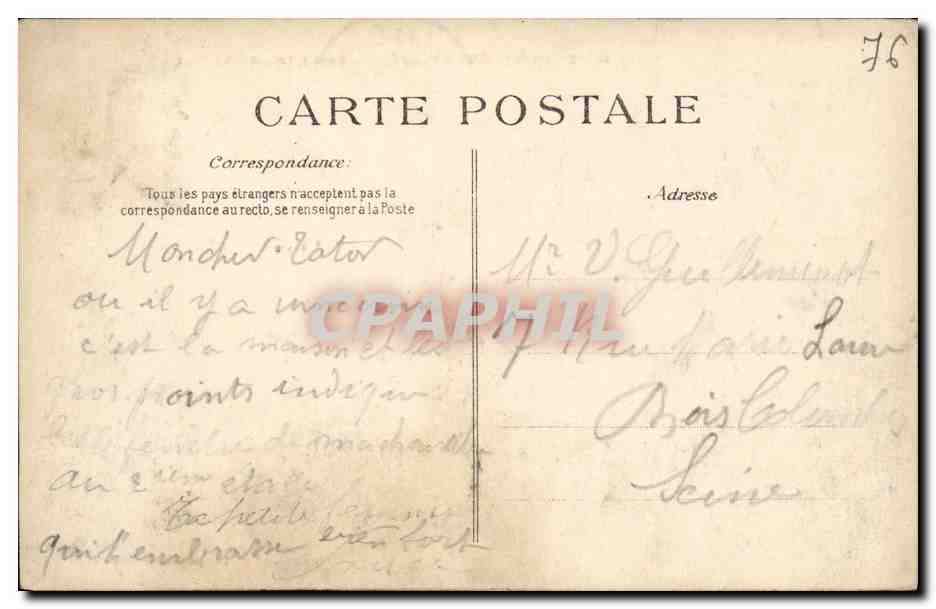 76
CARTE POSTALE
Correspondance:
Tous les pays étrangers n'acceptent pas la
correspondance au recto, se renseigner à la Poste
Mon cher Totor
ou il y a une croix
c'est la maison et les
gros points indique
fenêtre de ma chambre
au 2ième étage
Ta petite femme
qui t'embrasse bien fort
Adresse
Mr V. Guilleminot
7 Rue Marie Laure
Bois Colombes
Seine
CPAPHIL